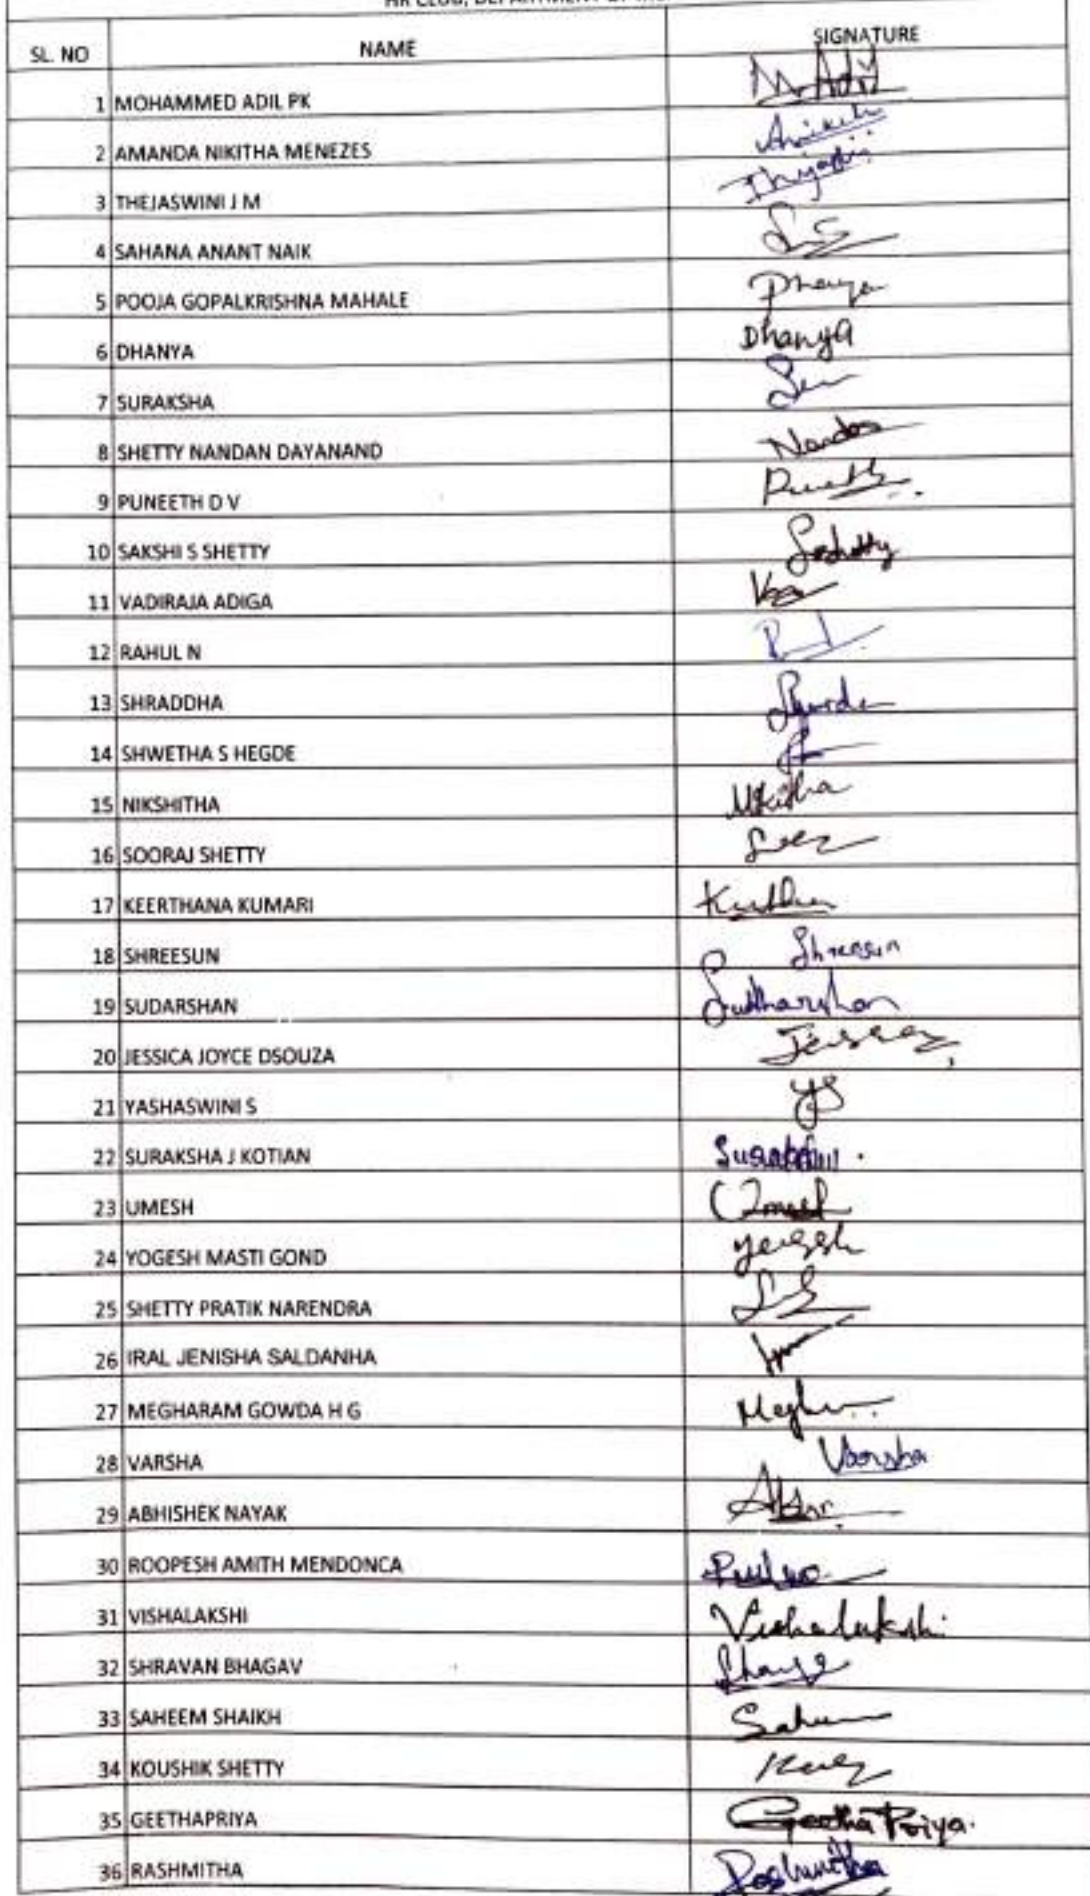 HR CLUB, DEPARTMENT OF
SL. NO NAME SIGNATURE
1 MOHAMMED ADIL PK M. Adil
2 AMANDA NIKITHA MENEZES
3 THEJASWINI J M
4 SAHANA ANANT NAIK
5 POOJA GOPALKRISHNA MAHALE
6 DHANYA Dhanya
7 SURAKSHA
8 SHETTY NANDAN DAYANAND Nandan
9 PUNEETH D V Puneeth
10 SAKSHI S SHETTY Sshetty
11 VADIRAJA ADIGA
12 RAHUL N
13 SHRADDHA
14 SHWETHA S HEGDE
15 NIKSHITHA
16 SOORAJ SHETTY
17 KEERTHANA KUMARI
18 SHREESUN Shreesun
19 SUDARSHAN Sudharshan
20 JESSICA JOYCE DSOUZA
21 YASHASWINI S YS
22 SURAKSHA J KOTIAN
23 UMESH Umesh
24 YOGESH MASTI GOND Yogesh
25 SHETTY PRATIK NARENDRA
26 IRAL JENISHA SALDANHA
27 MEGHARAM GOWDA H G
28 VARSHA Varsha
29 ABHISHEK NAYAK
30 ROOPESH AMITH MENDONCA
31 VISHALAKSHI Vishalakshi
32 SHRAVAN BHAGAV
33 SAHEEM SHAIKH
34 KOUSHIK SHETTY
35 GEETHAPRIYA Geetha Priya.
36 RASHMITHA Rashmitha